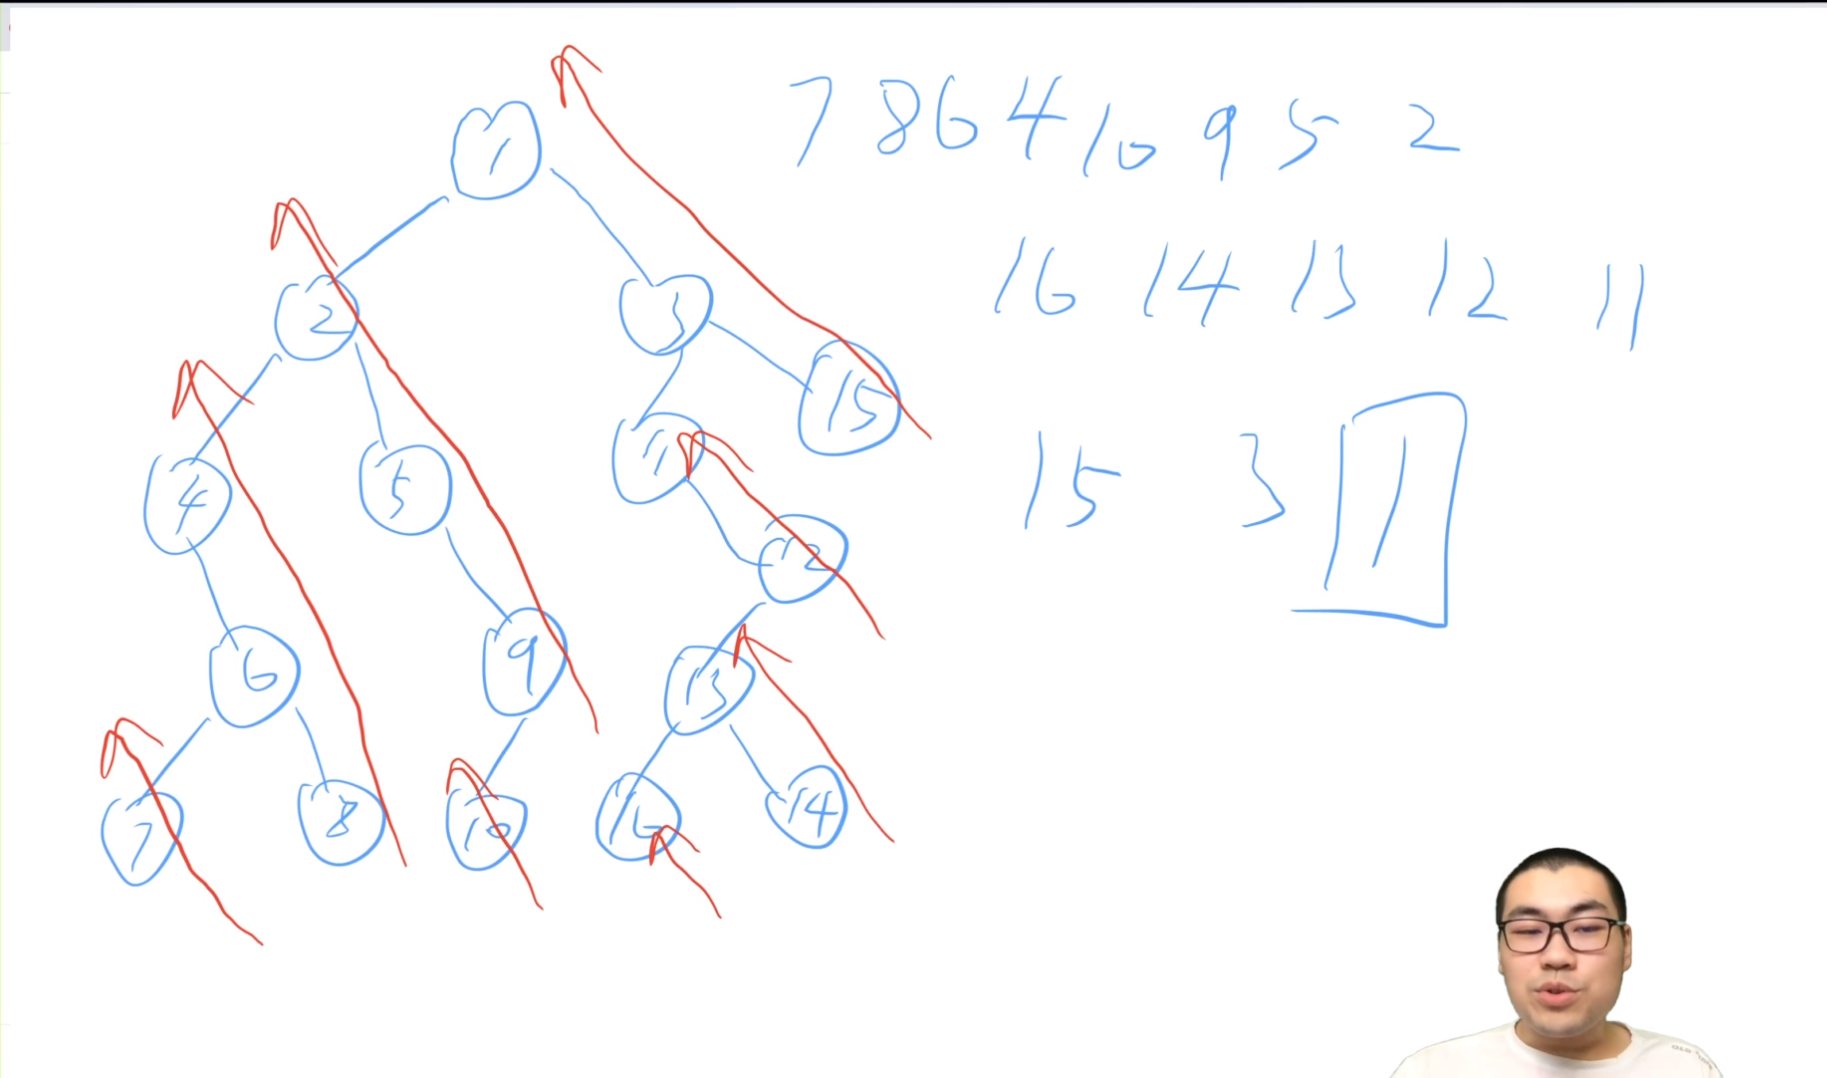 1
2 3
4 5 11 15
6 9 12
13
7 8 10 16 14
7 8 6 4 10 9 5 2
16 14 13 12 11
15 3 1